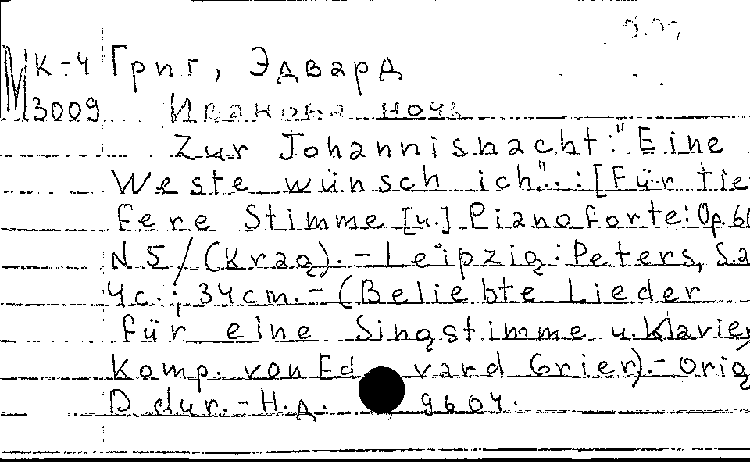 К-4 Григ, Эдвард
М 3009 Иванова ночь
Zur Johannisnacht: "Eine
Weste wünsch ich". : [Für tie
fere Stimme [u.] Pianoforte: Op. 61
N 5/(Krag). - Leipzig: Peters, S.a
4c.; 34cm. - (Beliebte Lieder
für eine Singstimme u. Klavier
Komp. von Edvard Grier). - Orig
D dur. - Н.д. 9604.